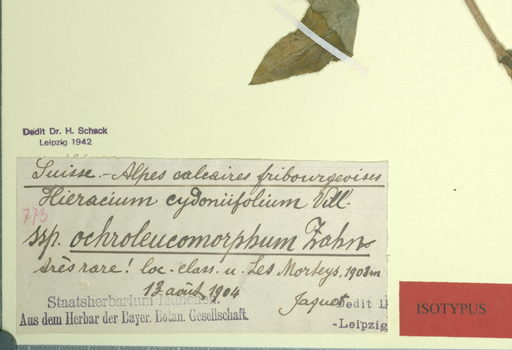 Dedit Dr. H. Schack
Leipzig 1942
Suisse.- Alpes calcaires fribourgeoises
Hieracium cydoniifolium Vill.
773
ssp. ochroleucomorphum Zahn
très rare! loc. class. u. Les Morteys, 1900m
13 août 1904
Jaquet
Staatsherbarium München
Aus dem Herbar der Bayer. Botan. Gesellschaft.
Dedit
-Leipzig
ISOTYPUS